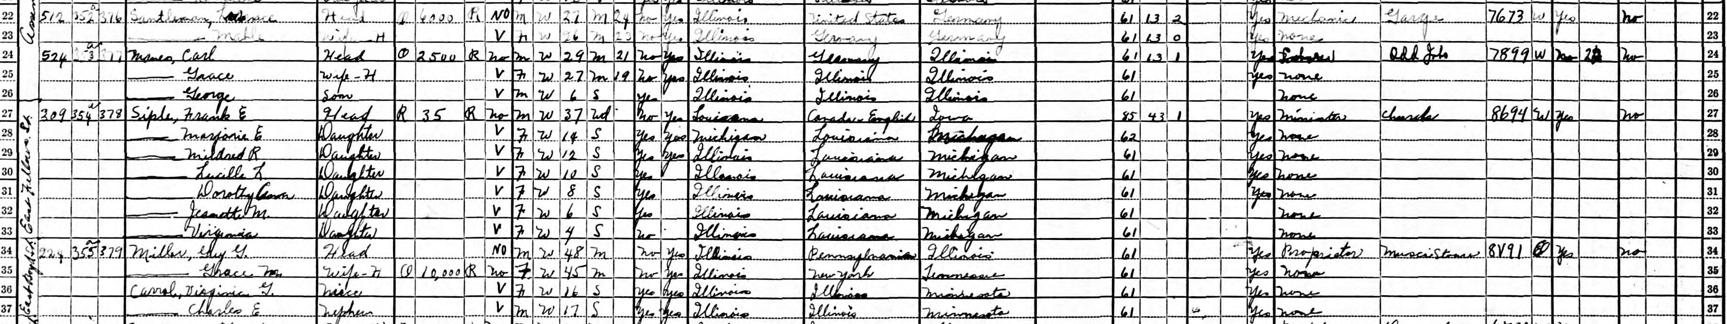 22 512 352 376 Head O 6000 R NO M W 27 M 24 No Yes Illinois United States Germany 61 13 2 Yes Mechanic Garage 7673 W Yes No 22
23 Wife-H V F W 26 M 23 No Yes Illinois Germany Germany 61 13 0 Yes None 23
24 524 Carl Head O 2500 R No M W 29 M 21 No Yes Illinois Germany Illinois 61 13 1 Yes Odd Jobs 7899 W No No 24
25 Grace Wife-H V F W 27 M 19 No Yes Illinois Illinois Illinois 61 Yes None 25
26 George Son V M W 6 S Yes Illinois Illinois Illinois 61 None 26
27 209 354 378 Siple, Frank E Head R 35 R No M W 37 Wd No Yes Louisiana Canada-English Iowa 85 43 1 Yes Minister Church 8694 W Yes No 27
28 Marjorie E. Daughter V F W 14 S Yes Yes Michigan Louisiana Michigan 62 Yes None 28
29 Mildred R Daughter V F W 12 S Yes Yes Illinois Louisiana Michigan 61 Yes None 29
30 Lucille L. Daughter V F W 10 S Yes Illinois Louisiana Michigan 61 Yes None 30
31 Dorothy Ann Daughter V F W 8 S Yes Illinois Louisiana Michigan 61 Yes None 31
32 Jeanette M. Daughter V F W 6 S Yes Illinois Louisiana Michigan 61 None 32
33 Virginia Daughter V F W 4 S No Illinois Louisiana Michigan 61 None 33
34 224 355 379 Miller, Guy G. Head NO M W 48 M No Yes Illinois Pennsylvania Illinois 61 Yes Proprietor Music Store 8V91 O Yes No 34
35 Grace M. Wife-H O 10,000 R No F W 45 M No Yes Illinois New York Tennessee 61 Yes None 35
36 Carrol, Virginia G. Niece V F W 16 S Yes Yes Illinois Illinois Minnesota 61 Yes None 36
37 Charles E Nephew V M W 17 S Yes Yes Illinois Illinois Minnesota 61 Yes None 37